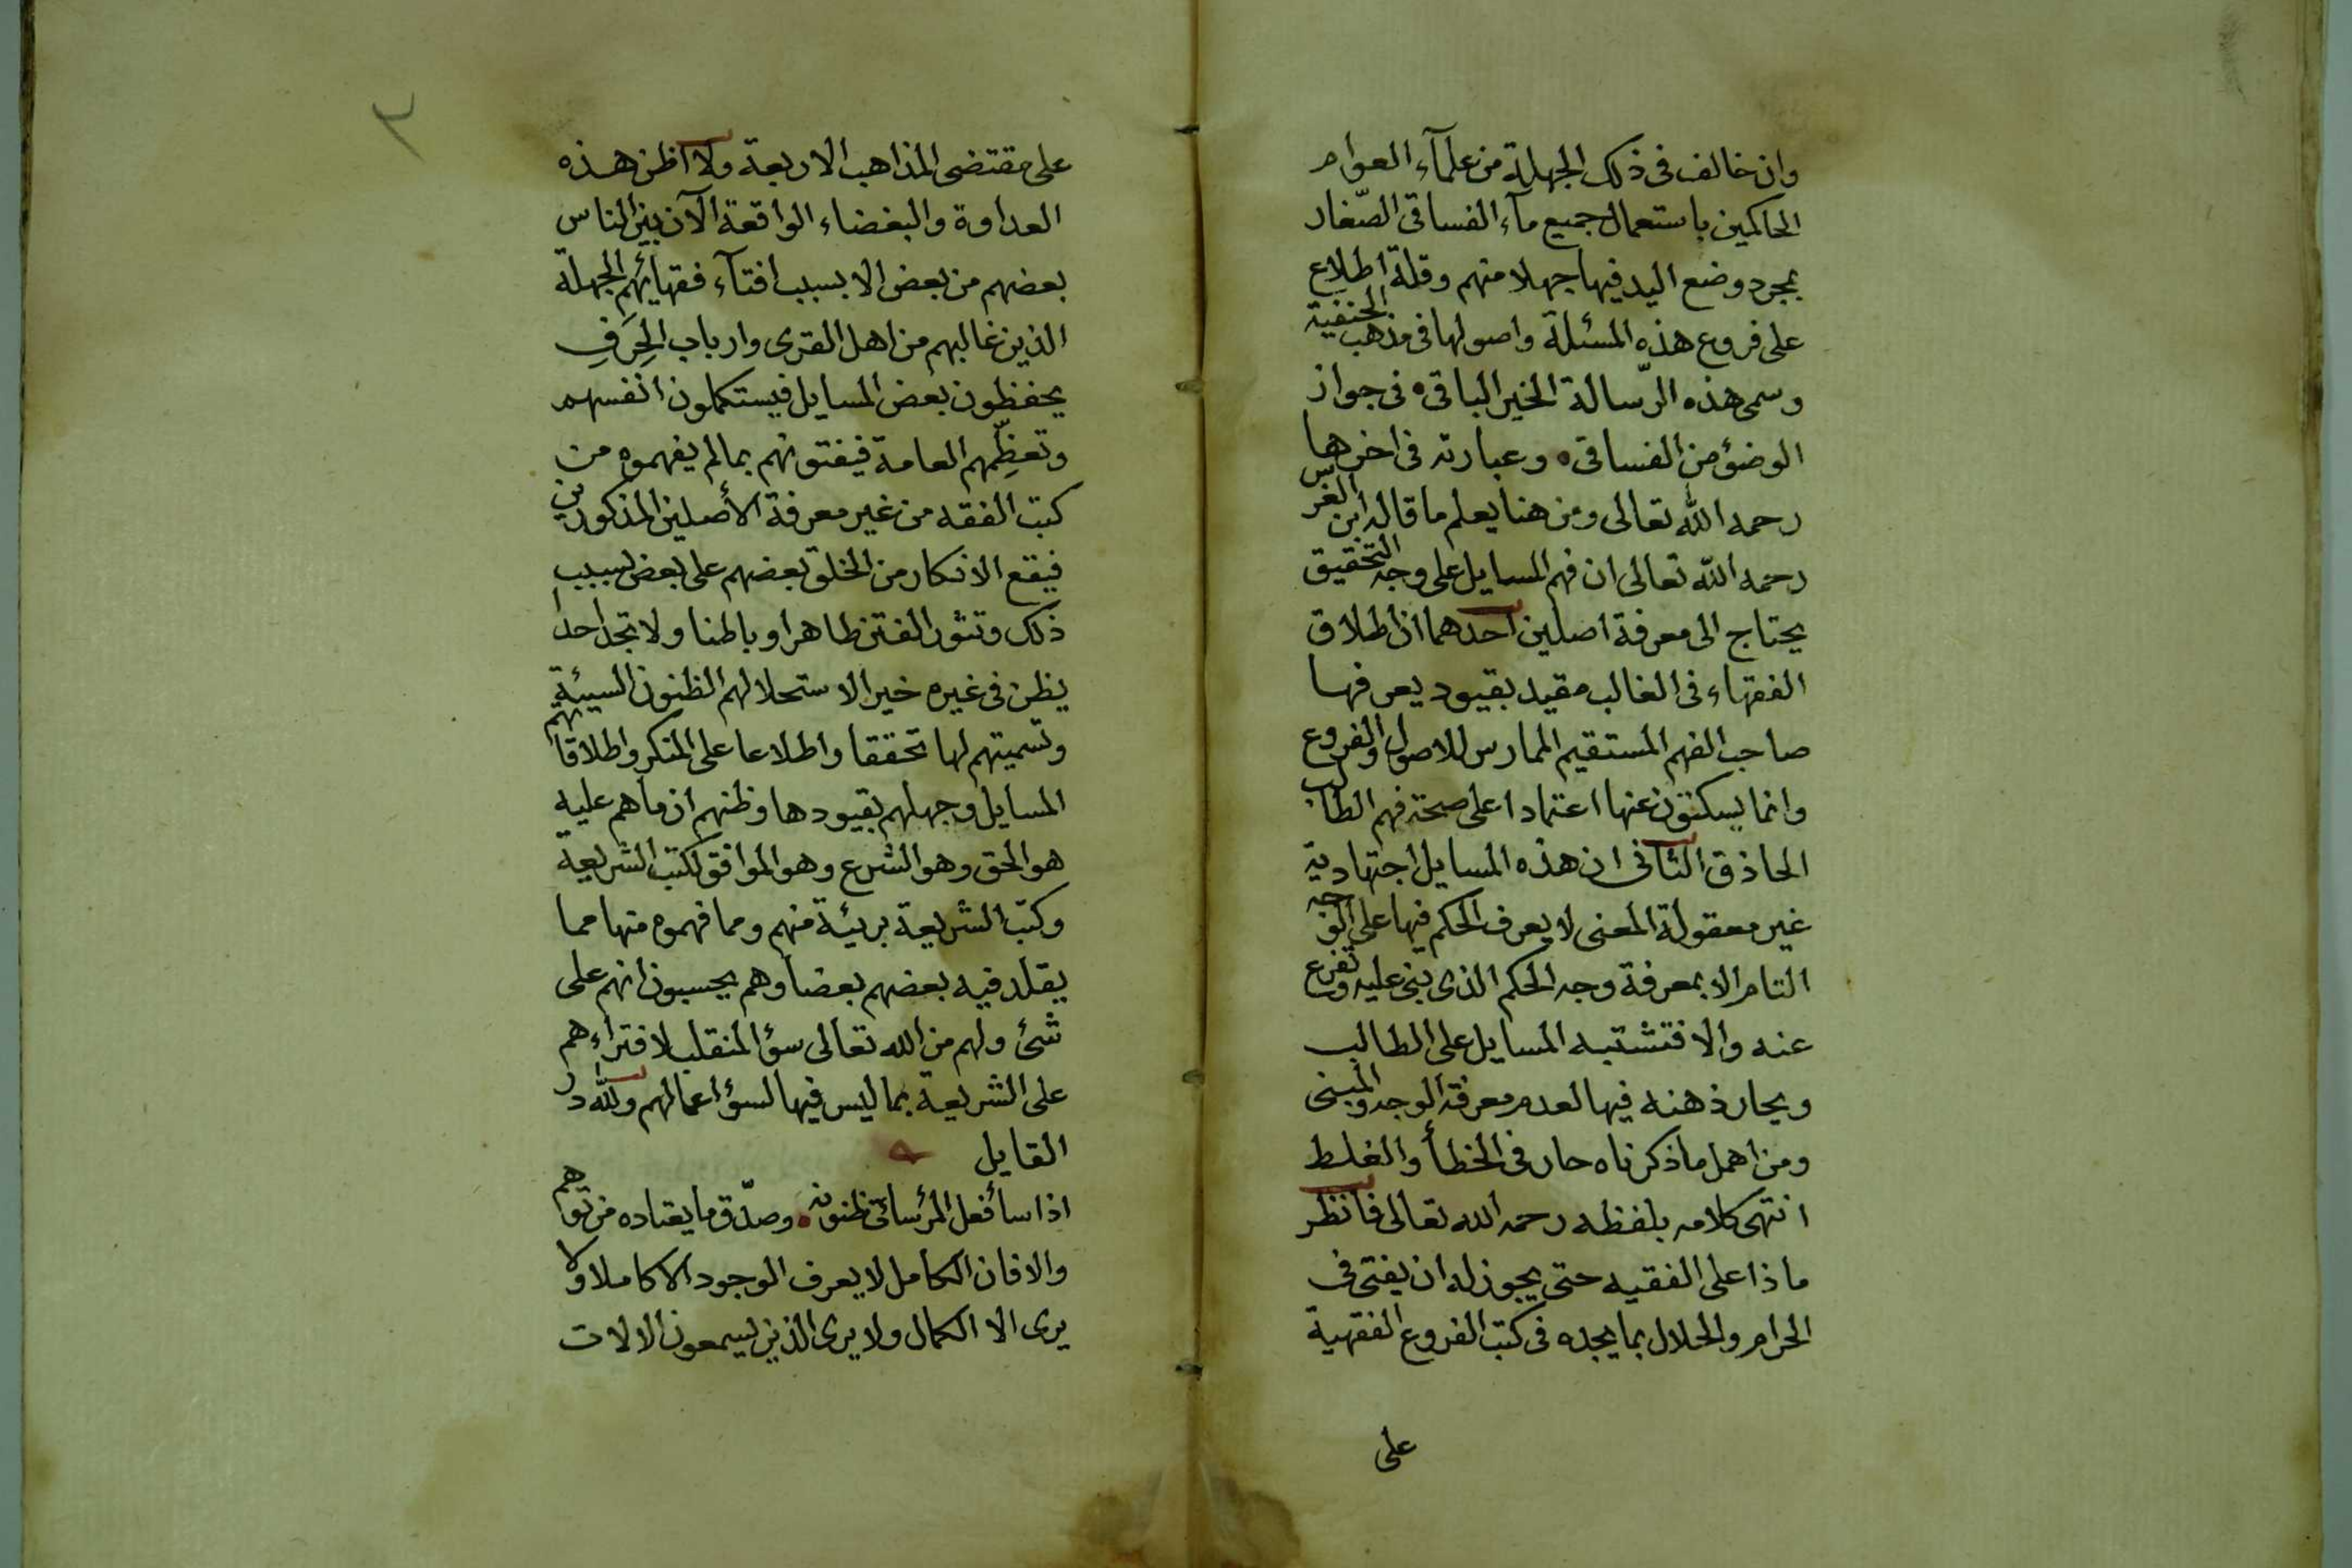 وان خالف فى ذلك الجهلة من علمآء العوام
الحاكمين باستعمال جميع مآء الفساقى الصّغار
بمجرد وضع اليد فيها جهلا منهم وقلة اطلاع
على فروع هذه المسئلة واصولها فى مذهب الحنفية
وسمى هذه الرّسالة الخير الباقى ه فى جواز
الوضؤ من الفساقى • وعبارته فى اخرها
رحمه الله تعالى ومن هنا يعلم ما قاله ابن الغرس
رحمه الله تعالى ان فهم المسايل على وجه التحقيق
يحتاج الى معرفة اصلين احدهما ان اطلاق
الفقهاء فى الغالب مقيد بقيود يعرفها
صاحب الفهم المستقيم الممارس للاصول والفروع
وانما يسكتون عنها اعتمادا على صحة فهم الطالب
الحاذق الثانى ان هذه المسايل اجتهادية
غير معقولة المعنى لا يعرف الحكم فيها على الوجه
التام الا بمعرفة وجه الحكم الذى بنى عليه وتفرع
عنه والا فتشتبه المسايل على الطالب
ويحار ذهنه فيها لعدم معرفة الوجه والمبنى
ومن اهمل ما ذكرناه حار فى الخطأ والغلط
انتهى كلامه بلفظه رحمه الله تعالى فانظر
ماذا على الفقيه حتى يجوز له ان يفتى فى
الحرام والحلال بما يجده فى كتب الفروع الفقهية
على
٣
على مقتضى المذاهب الاربعة ولا اظن هذه
العداوة والبغضاء الواقعة الآن بين الناس
بعضهم من بعض الا بسبب افتآء فقهآئهم الجهلة
الذين غالبهم من اهل القرى وارباب الحِرَفِ
يحفظون بعض المسايل فيستكملون انفسهم
وتعظِّمهم العامة فيفتونهم بما لم يفهموه من
كتب الفقه من غير معرفة الأصلين المذكورين
فيقع الانكار من الخلق بعضهم على بعض بسبب
ذلك وتثور الفتن ظاهرا وباطنا ولا تجد احدا
يظن فى غيره خيرا لاستحلالهم الظنون السيئة
وتسميتهم لها تحققا واطلاعا على المنكر واطلاقاتهم
المسايل وجهلهم بقيودها وظنهم ان ما هم عليه
هو الحق وهو الشرع وهو الموافق لكتب الشريعة
وكتب الشريعة بريئة منهم ومما فهموه منها مما
يقلد فيه بعضهم بعضا وهم يحسبون انهم على
شئ ولهم من الله تعالى سؤ المنقلب لافتراءهم
على الشريعة بما ليس فيها لسؤ اعمالهم ولله در
القايل
اذا سأ فعل المرء سائت ظنونه • وصدّق ما يعتاده من توهم
والا فان الكامل لا يعرف الوجود الا كاملا ولا
يرى الا الكمال ولا يرى الذين يسمعون الالات